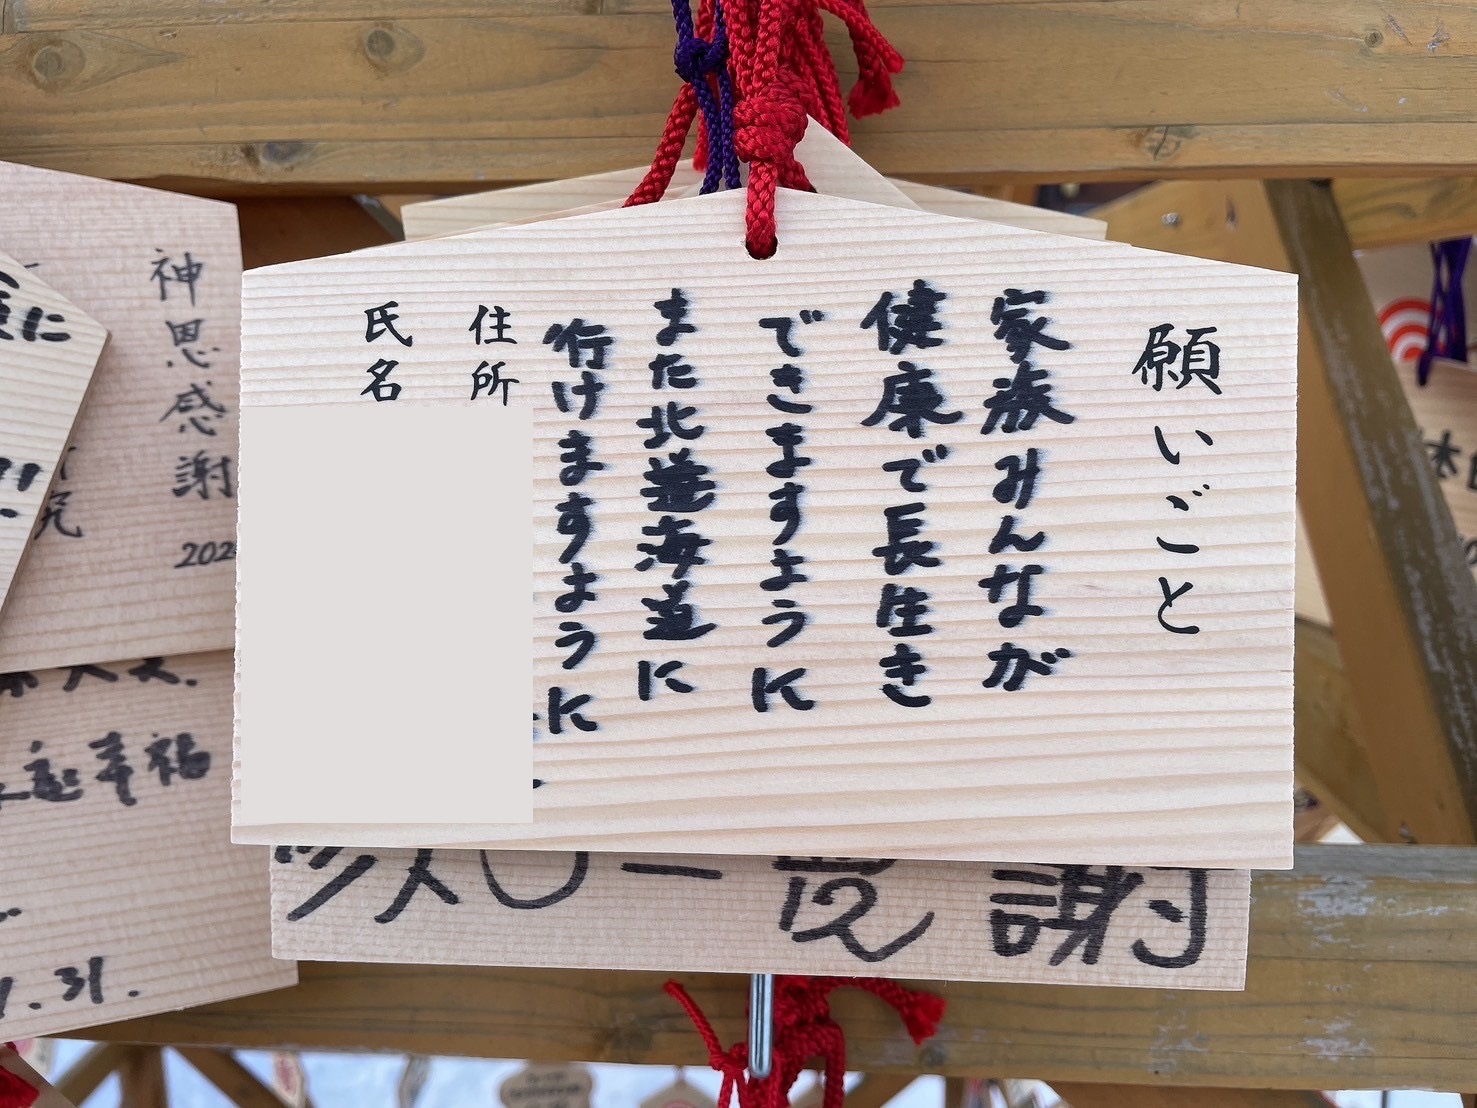 願いごと
家族みんなが
健康で長生き
できますように
また北海道に
行けますように
住所
氏名
神恩感謝
202
幸福
.31.
謝